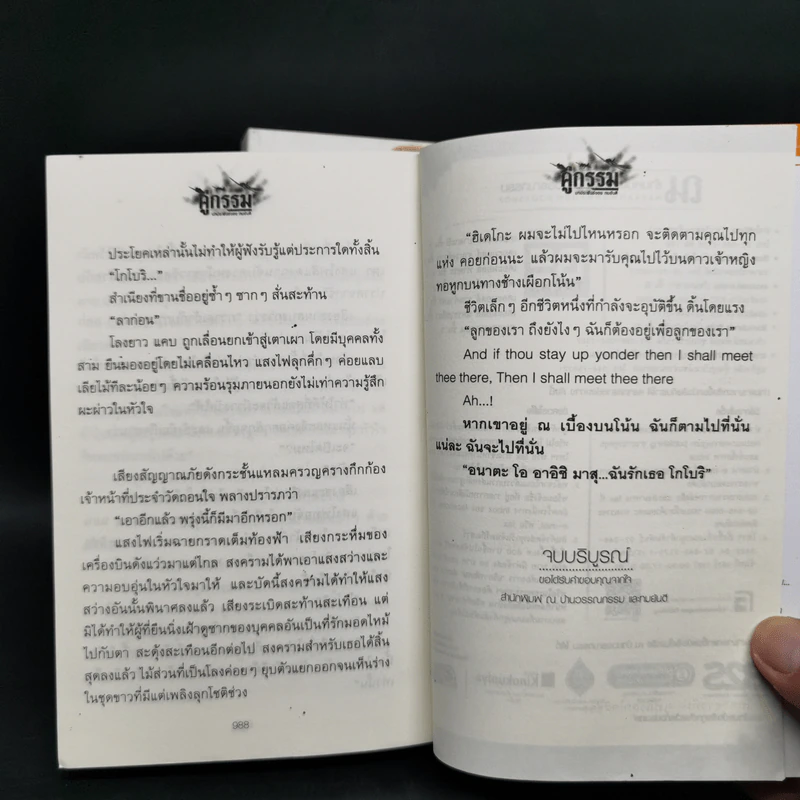 คู่กรรม
ประโยคเหล่านั้นไม่ทำให้ผู้ฟังรับรู้แต่ประการใดทั้งสิ้น
“โกโบริ...”
สำเนียงที่ขานชื่ออยู่ซ้ำๆ ซากๆ สั่นสะท้าน
“ลาก่อน”
โลงยาว แคบ ถูกเลื่อนยกเข้าสู่เตาเผา โดยมีบุคคลทั้ง
สาม ยืนมองอยู่โดยไม่เคลื่อนไหว แสงไฟลุกคึกๆ ค่อยแลบ
เลียไม้ทีละน้อยๆ ความร้อนรุมภายนอกยังไม่เท่าความรู้สึก
ผะผ่าวในหัวใจ
เสียงสัญญาณภัยดังกระชั้นแหลมครวญครางกึกก้อง
เจ้าหน้าที่ประจำวัดถอนใจ พลางปรารภว่า
“เอาอีกแล้ว พรุ่งนี้ก็มีมาอีกหรอก”
แสงไฟเริ่มฉายกราดเต็มท้องฟ้า เสียงกระหึ่มของ
เครื่องบินดังแว่วมาแต่ไกล สงครามได้พาเอาแสงสว่างและ
ความอบอุ่นในหัวใจมาให้ และบัดนี้สงครามได้ทำให้แสง
สว่างอันนั้นพินาศลงแล้ว เสียงระเบิดสะท้านสะเทือน แต่
มิได้ทำให้ผู้ที่ยืนนิ่งเฝ้าดูซากของบุคคลอันเป็นที่รักมอดไหม้
ไปกับตา สะดุ้งสะเทือนอีกต่อไป สงครามสำหรับเธอได้สิ้น
สุดลงแล้ว ไม้ส่วนที่เป็นโลงค่อยๆ ยุบตัวแยกออกจนเห็นร่าง
ในชุดขาวที่มีแต่เพลิงลุกโชติช่วง
988
คู่กรรม
“ฮิเดโกะ ผมจะไม่ไปไหนหรอก จะติดตามคุณไปทุก
แห่ง คอยก่อนนะ แล้วผมจะมารับคุณไปไว้บนดาวเจ้าหญิง
ทอหูกบนทางช้างเผือกโน้น”
ชีวิตเล็กๆ อีกชีวิตหนึ่งที่กำลังจะอุบัติขึ้น ดิ้นโดยแรง
“ลูกของเรา ถึงยังไงๆ ฉันก็ต้องอยู่เพื่อลูกของเรา”
And if thou stay up yonder then I shall meet
thee there, Then I shall meet thee there
Ah...!
หากเขาอยู่ ณ เบื้องบนโน้น ฉันก็ตามไปที่นั่น
แน่ละ ฉันจะไปที่นั่น
“อนาตะ โอ อาอิชิ มาสุ...ฉันรักเธอ โกโบริ”
จบบริบูรณ์
ขอได้รับคำขอบคุณจากใจ
สำนักพิมพ์ ณ บ้านวรรณกรรม และทมยันตี